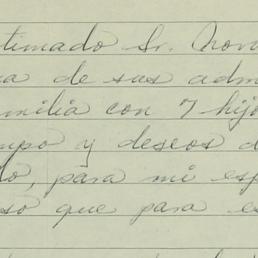 timado Sr. Nov
a de sus adm
milia con 7 hijo
mpo y deseos d
do, para mi esp
so que para es